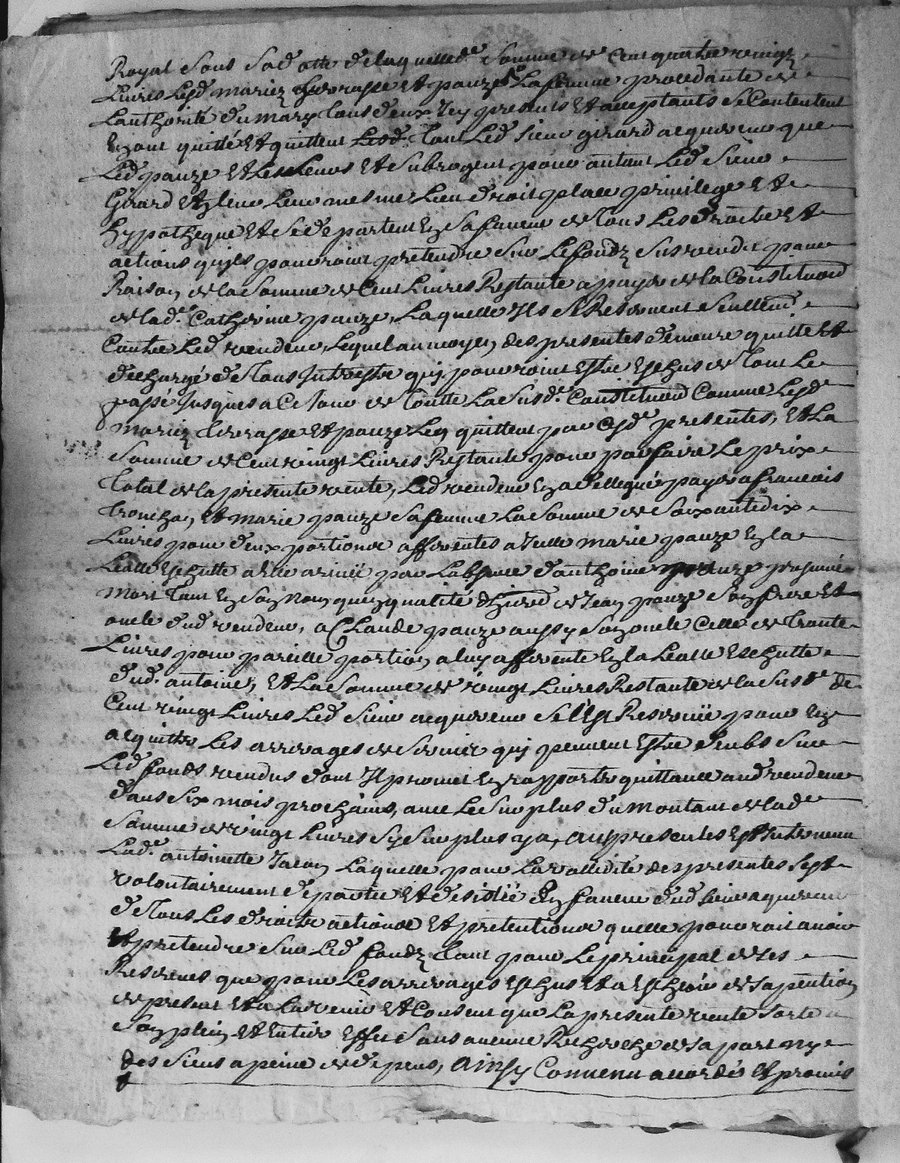 Royal sous sad. cotte de laquelle de. somme de cent quatre vingt
Livres Lesd. mariez Terrasse et pauze La femme procedante de
Lauthorité du mary tous deux Icy presents et acceptants se contentent
En ont quitté et quittent Led. tant Led. sieur girard acquereur que
Led. pauze et Les Leurs et subrogent pour autant Led. sieur
Girard En leur Lieu mesme Lieu droit place privilege et
hypotheque et se departent En sa faveur de tous Les droits et
actions quils pourroint pretendre sur Le fondz sus vendu pour
Raison de la somme de cent Livres Restante a payer de la Constitution
de lad. Catherine pauze, Laquelle Ils se Reservent seullemt.
Contre Led. vendeur, Lequel au moyen des presentes demeure quitte et
dechargé de tous Interestz quy pourroint Estre Eschus de tout Le
passé Jusques a Ce Jour de toutte La susd. Constitution Comme Lesd.
mariez Terrasse et pauze Len quittent par Cesd. presentes, et La
somme de Cent vingt Livres Restante pour parfaire Le prix
total de la presente vente, Led. vendeur En a dellegué payer a francois
tronchon, et marie pauze sa femme La somme de soixante dix
Livres pour deux portions afferentes a Icelle marie pauze En la
Lealle Escheutte arrivée par Labsence danthoine pauze presumé
mort tant En son Nom quen qualité dheredt. de Jean pauze son frere et
oncle dud. vendeur, a Claude pauze aussy son oncle Celle de trente
Livres pour pareille portion a luy afferente En la Lealle Escheutte
dud. antoine, et La somme de vingt Livres Restante de la susd. de
Cent vingt Livres Led. sieur acquereur se lest Reservée pour En
acquitter Les arrerages de servis quy peuvent Estre deubs sur
Led. fonds vendus dont Il promet En rapporter quittance aud. vendeur
dans six mois prochains, avec Le surplus du montant de lad.
somme de vingt Livres sy surplus y a, aux presentes Est Intervenu
Lad. antoinette Jacon Laquelle pour La validité des presentes sest
volontairement departie et desistée En faveur dud. sieur acquereur
de tous Les droits actions et pretentions quelle pourroit avoir
et pretendre sur Led. fondz tant pour Le principal de ses
Reserves que pour Les arrerages Eschus et a Escheoir de sa pention
de present et a Lavenir et Consent que La presente vente sorte
son plein et Entier Effet sans aucune Recherche de sa part ny
des siens a peine de depens, Ainsy Convenu accordés et promis